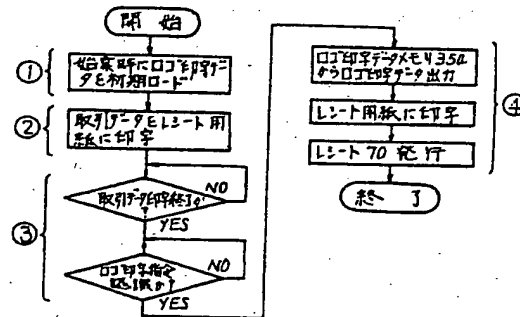 開始
①
始業時にロゴ印字デー
タを初期ロード
②
取引データをレシート用
紙に印字
③
取引データ印字終了か
?
NO
YES
ロゴ印字指定
認識か?
NO
YES
ロゴ印字データメモリ35a
からロゴ印字データ出力
④
レシート用紙に印字
レシート70発行
終了